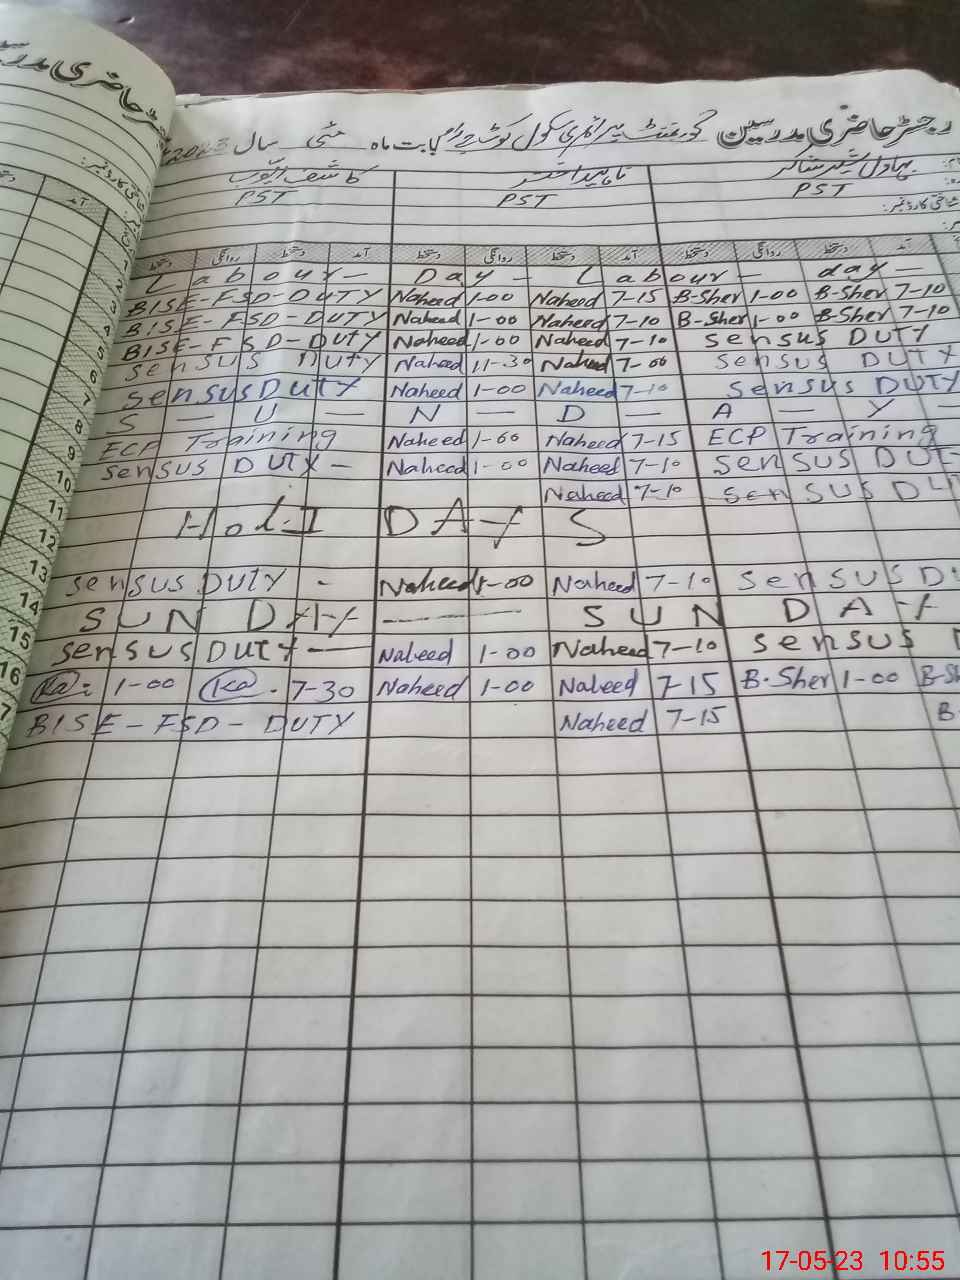 رجسٹر حاضری مدرسین گورنمنٹ پرائمری سکول بابت ماہ مئی سال 2023
بہادل شیر شاکر ناہید اختر کاشف ایوب
PST PST PST
شناختی کارڈ نمبر:
آمد دستخط روانگی دستخط آمد دستخط روانگی دستخط آمد دستخط روانگی دستخط
1 Labour — Day — Labour — day —
2 BISE-FSD-DUTY Naheed 1-00 Naheed 7-15 B-Sher 1-00 B-Sher 7-10
3 BISE-FSD-DUTY Naheed 1-00 Naheed 7-10 B-Sher 1-00 B-Sher 7-10
4 BISE-FSD-DUTY Naheed 1-00 Naheed 7-10 Sensus DUTY
5 Sensus Duty Naheed 11-30 Naheed 7-00 Sensus DUTY
6 Sensus DUTY Naheed 1-00 Naheed 7-10 Sensus DUTY
7 S — U — N — D — A — Y —
8 ECP Training Naheed 1-00 Naheed 7-15 ECP Training
9 Sensus DUTY — Naheed 1-00 Naheed 7-10 Sensus DUT
10 Naheed 7-10 Sensus DUT
11 HoLI DAYS
12
13 Sensus DUTY - Naheed 1-00 Naheed 7-10 Sensus DU
14 SUN DAY — SUN DAY
15 Sensus DUTY — Naheed 1-00 Naheed 7-10 Sensus
16 Ka: 1-00 Ka. 7-30 Naheed 1-00 Naheed 7-15 B.Sher 1-00 B-Sh
7 BISE-FSD-DUTY Naheed 7-15 B-
17-05-23 10:55